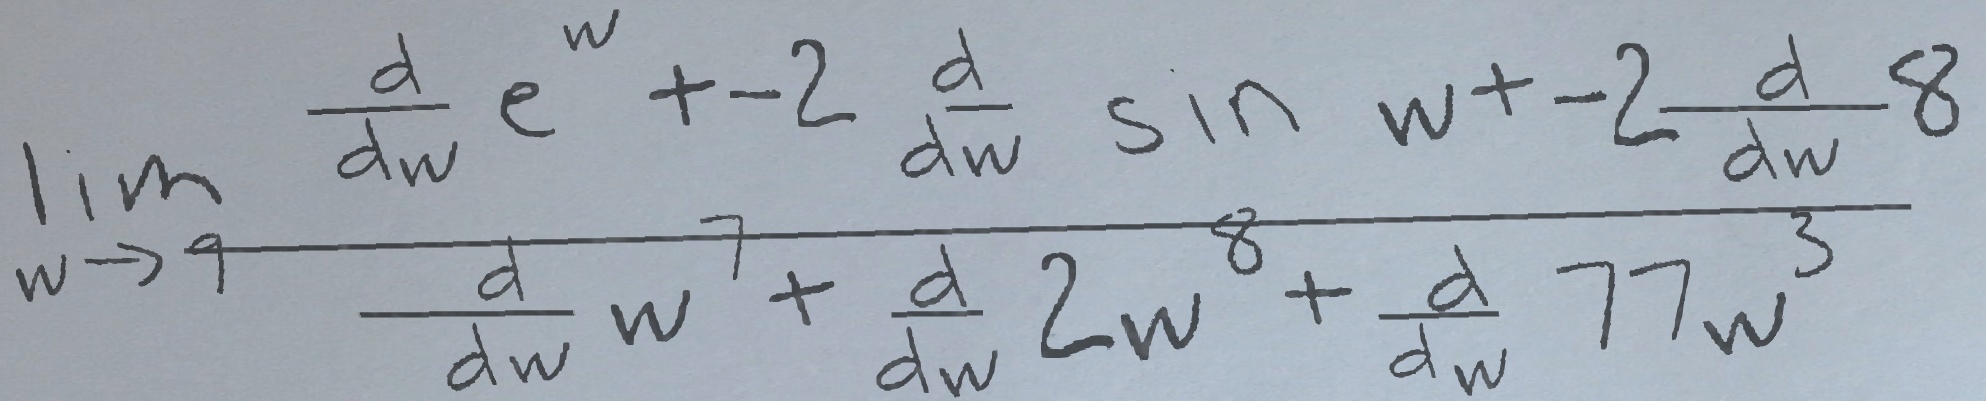 \lim_{w \to 9} \frac{\frac{d}{dw} e^{w} + -2 \frac{d}{dw} \sin w + -2 \frac{d}{dw} 8}{\frac{d}{dw} w^{7} + \frac{d}{dw} 2w^{8} + \frac{d}{dw} 77w^{3}}